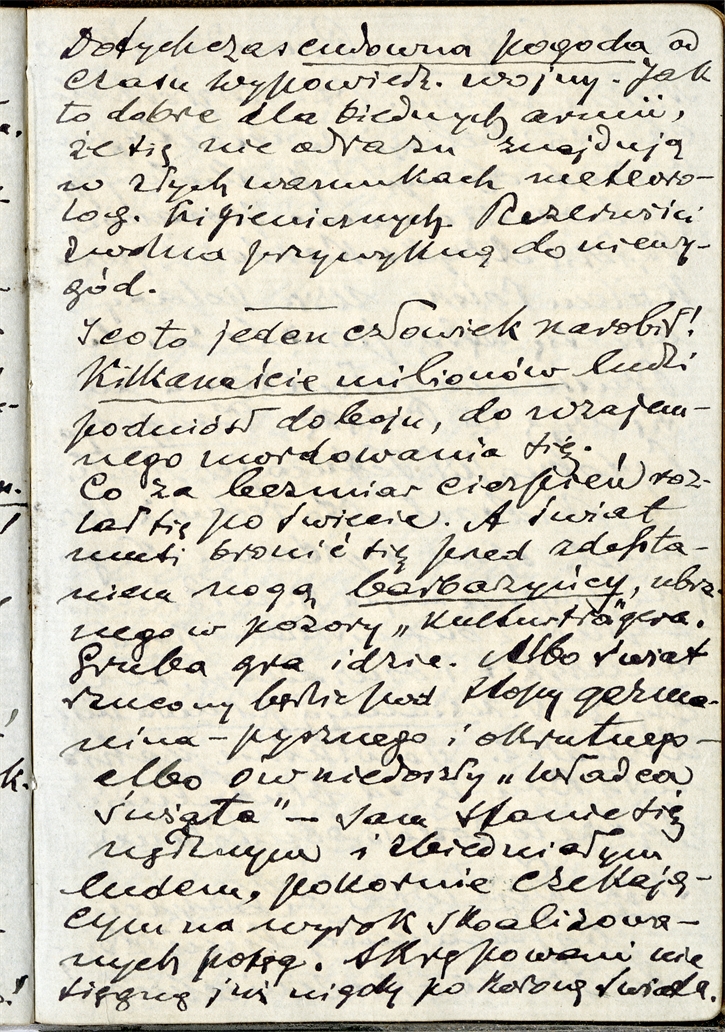 Dotychczas cudowna pogoda od
czasu wypowiedz. wojny. Jak
to dobre dla biednych armii,
że się nie odrazu znajdują
w złych warunkach meteoro-
log. higienicznych. Rezerwiści
zwolna przywykną do niewy-
gód.
I co to jeden człowiek narobił!
Kilkanaście milionów ludzi
podniósł do boju, do wzajem-
nego mordowania się.
Co za bezmiar cierpień roz-
lał się po świecie. A świat
musi bronić się przed zdepta-
niem nogą barbarzyńcy, ubra-
nego w pozory „Kulturträgera.”
Gruba gra idzie. Albo świat
rzucony będzie pod stopy germa-
nina - pysznego i okrutnego -
albo ów niedoszły „władca
świata” - sam stanie się
nędznym i zbiedniałym
ludem, pokornie czekają-
cym na wyrok skoalizowa-
nych potęg. Skrępowani nie
sięgną już nigdy po koronę świata.